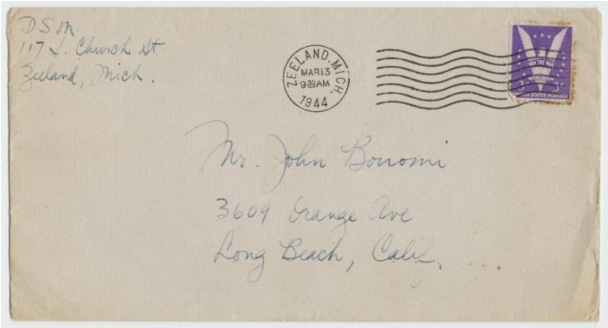 D S M.
117 S. Church St
Zeeland, Mich.
ZEELAND, MICH.
MAR 13
9 30 AM
1944
WIN THE WAR
3¢ 3¢
UNITED STATES POSTAGE
Mr. John Bonomi
3609 Orange Ave
Long Beach, Calif.